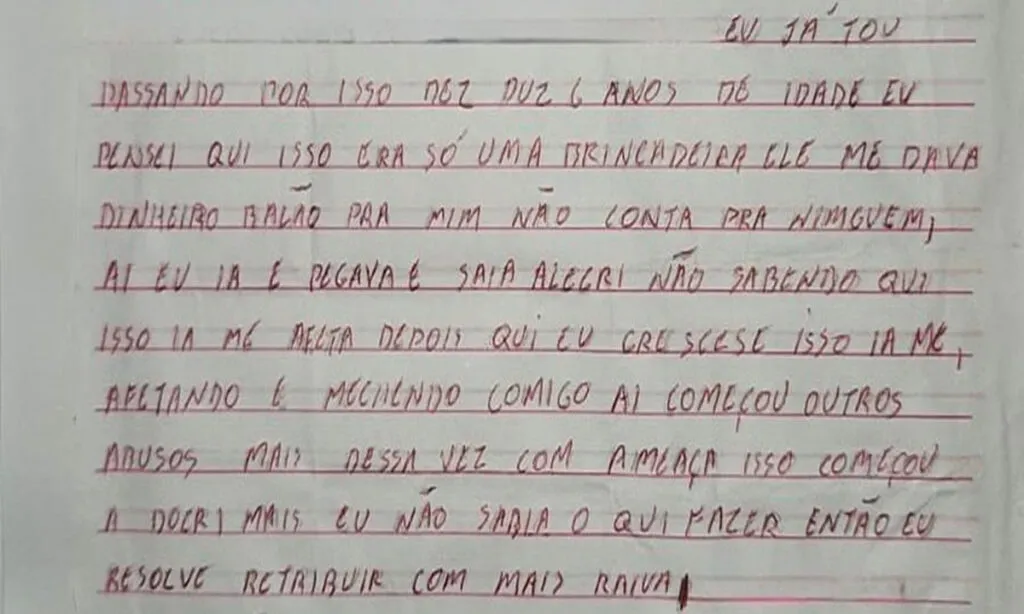 EU JÁ TOU
PASSANDO POR ISSO DEZ DUZ 6 ANOS DE IDADE EU
PENSEI QUI ISSO ERA SÓ UMA BRINCADEIRA ELE ME DAVA
DINHEIRO BALÃO PRA MIM NÃO CONTA PRA NIMGUEM,
AI EU IA E PEGAVA E SAIA ALEGRI NÃO SABENDO QUI
ISSO IA ME AFETA DEPOIS QUI EU CRESCESE ISSO IA ME,
AFETANDO E MECHENDO COMIGO AI COMEÇOU OUTROS
ABUSOS MAIS DESSA VEZ COM AMEAÇA ISSO COMEÇOU
A DOERI MAIS EU NÃO SABIA O QUI FAZER ENTÃO EU
RESOLVE RETRIBUIR COM MAIS RAIVA